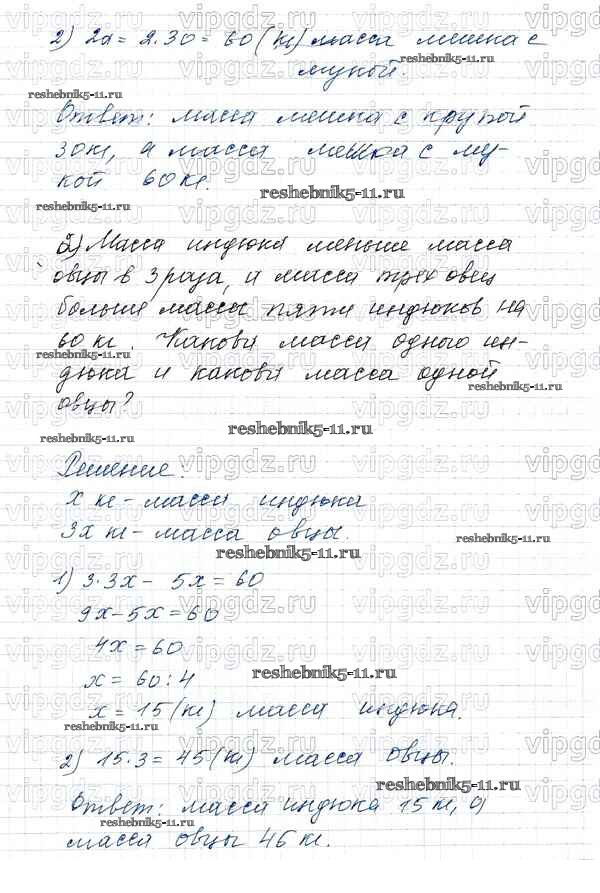 2) 2a = 2·30 = 60 (кг) масса мешка с
мукой.
reshebnik5-11.ru
Ответ: масса мешка с крупой
30 кг, а масса мешка с му-
кой 60 кг.
reshebnik5-11.ru
reshebnik5-11.ru
2) Масса индюка меньше масса
овцы в 3 раза, а масса трех овец
больше массы пяти индюков на
60 кг. Какова масса одного ин-
reshebnik5-11.ru
дюка и какова масса одной
reshebnik5-11.ru
овцы?
reshebnik5-11.ru
reshebnik5-11.ru
Решение.
x кг - масса индюка
3x кг - масса овцы.
reshebnik5-11.ru
1) 3·3x - 5x = 60
9x - 5x = 60
4x = 60
x = 60 : 4
reshebnik5-11.ru
x = 15 (кг) масса индюка.
reshebnik5-11.ru
2) 15·3 = 45 (кг) масса овцы.
reshebnik5-11.ru
Ответ: масса индюка 15 кг, а
reshebnik5-11.ru
масса овцы 46 кг.
vipgdz.ru